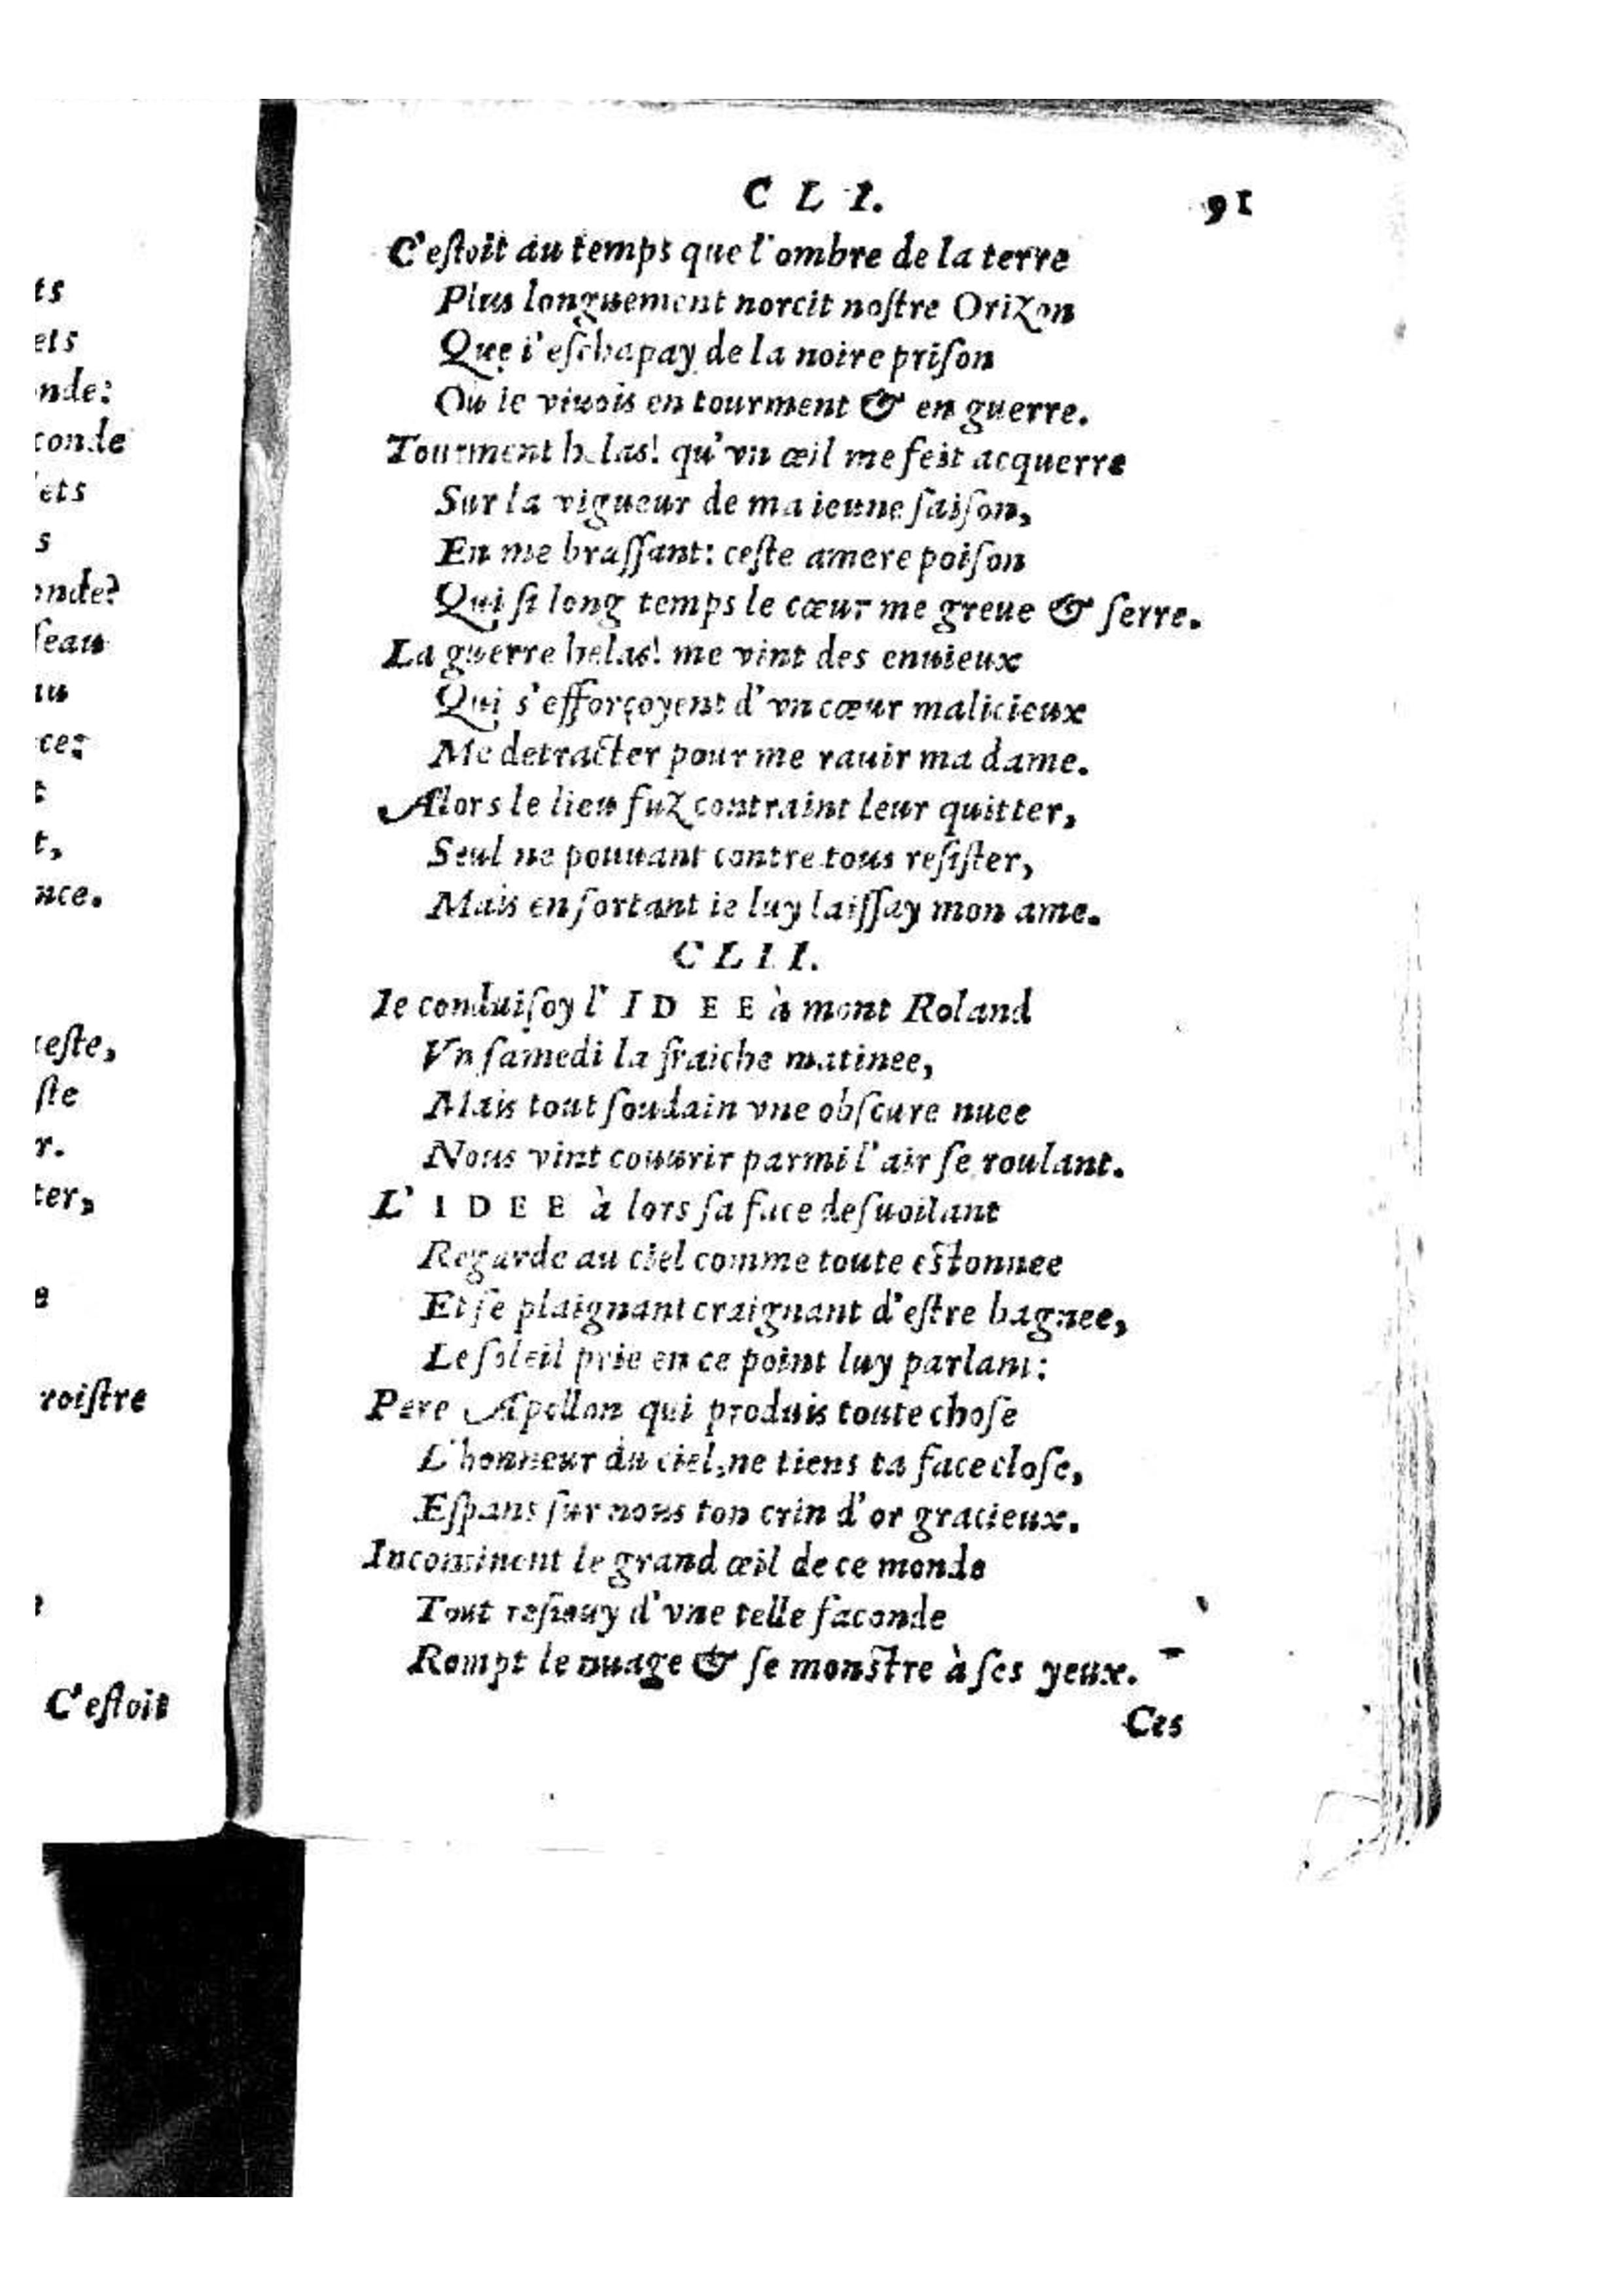 ts
ets
onde:
conde
lets
s
onde?
ſeau
au
ce:
t
t,
nce.
ueſte,
ſte
r.
ter,
e
roiſtre
C'eſtoit
C L I.
91
C'eſtoit au temps que l'ombre de la terre
Plus longuement norcit noſtre Orizon
Que i'eſchapay de la noire priſon
Ou ie viuois en tourment & en guerre.
Tourment helas! qu'vn œil me feit acquerre
Sur la vigueur de ma ieune ſaiſon,
En me braſſant: ceſte amere poiſon
Qui ſi long temps le cœur me greue & ſerre.
La guerre helas! me vint des enuieux
Qui s'efforçoyent d'vn cœur malicieux
Me detracter pour me rauir ma dame.
Alors le lieu fuz contraint leur quitter,
Seul ne pouuant contre tous reſiſter,
Mais en ſortant ie luy laiſſay mon ame.
C L I I.
Ie conduiſoy l' I D E E à mont Roland
Vn ſamedi la fraiche matinee,
Mais tout ſoudain vne obſcure nuee
Nous vint couurir parmi l'air ſe roulant.
L' I D E E à lors ſa face deſuoilant
Regarde au ciel comme toute eſtonnee
Et ſe plaignant craignant d'eſtre bagnee,
Le ſoleil prie en ce point luy parlant:
Pere Apollon qui produis toute choſe
L'honneur du ciel, ne tiens ta face cloſe,
Eſpans ſur nous ton crin d'or gracieux.
Incontinent le grand œil de ce monde
Tout reſiouy d'vne telle faconde
Rompt le nuage & ſe monſtre à ſes yeux.
Ces